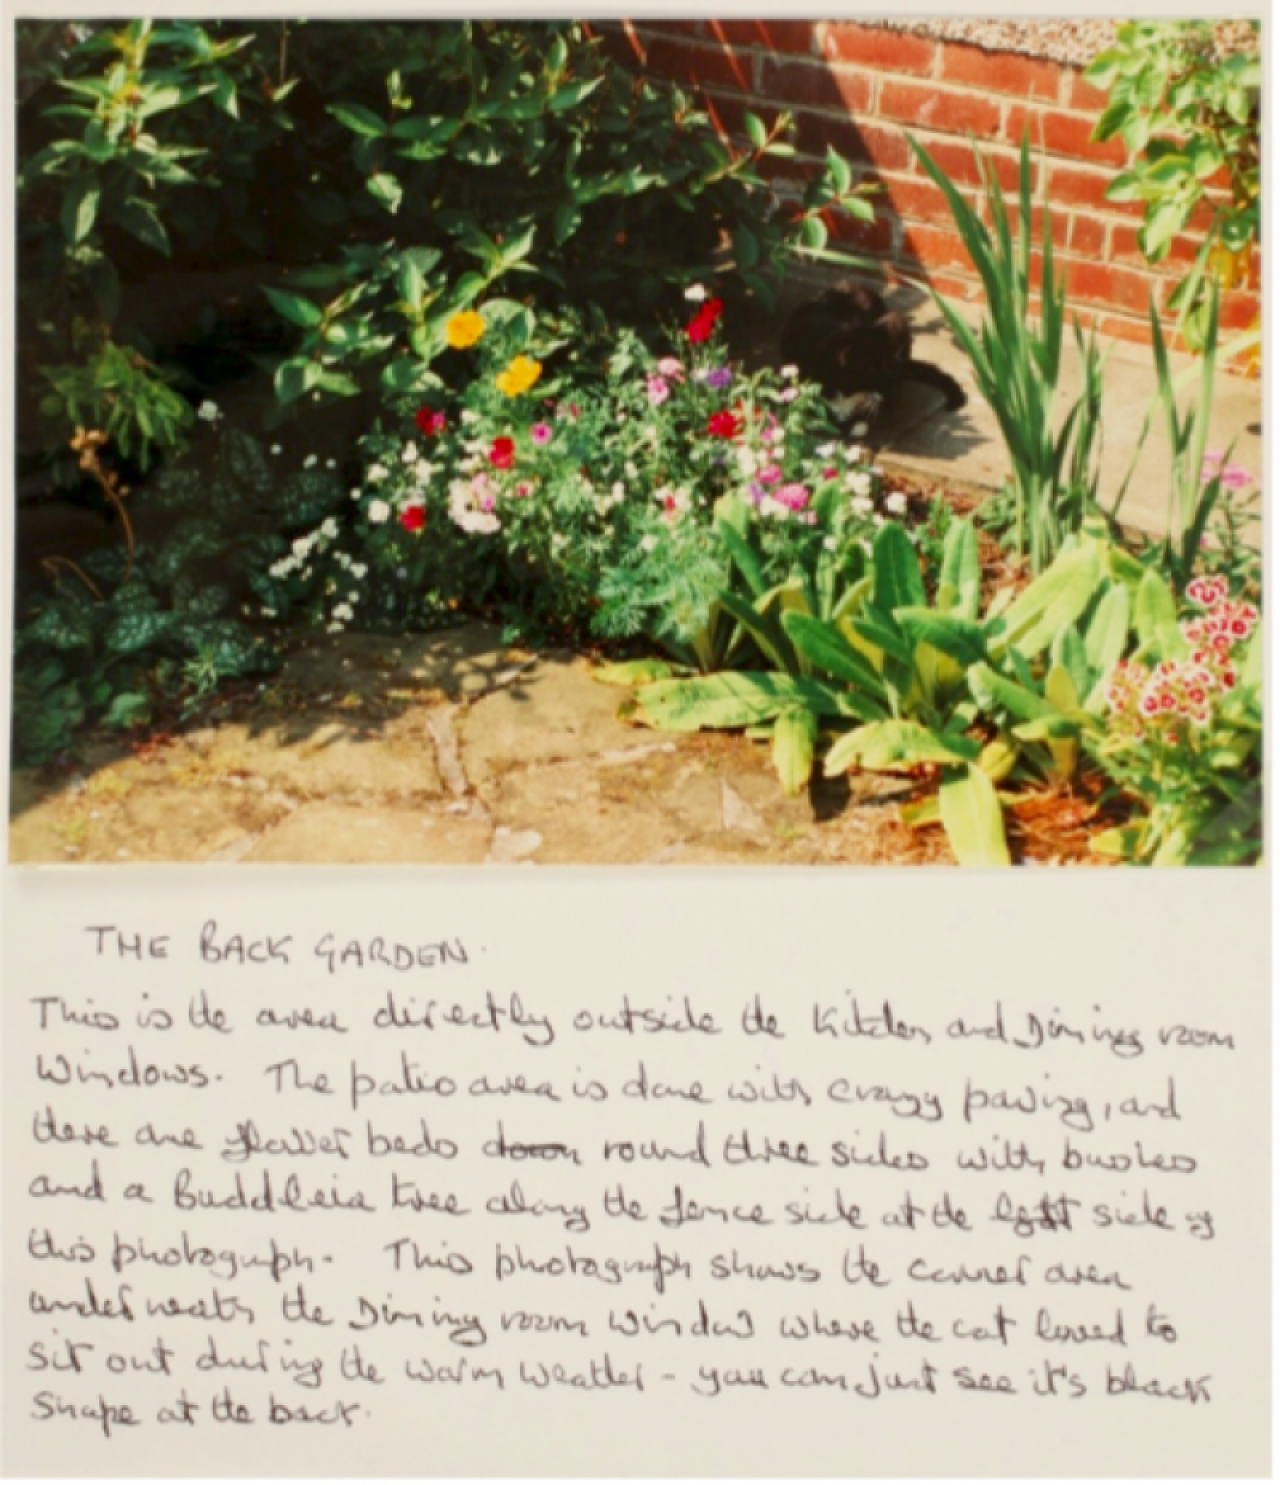 THE BACK GARDEN.
This is the area directly outside the Kitchen and Dining room
Windows. The patio area is done with crazy paving, and
there are flower beds down round three sides with bushes
and a Buddleia tree along the fence side at the left side of
this photograph. This photograph shows the corner area
underneath the Dining room window where the cat loved to
sit out during the warm weather - you can just see it's black
shape at the back.